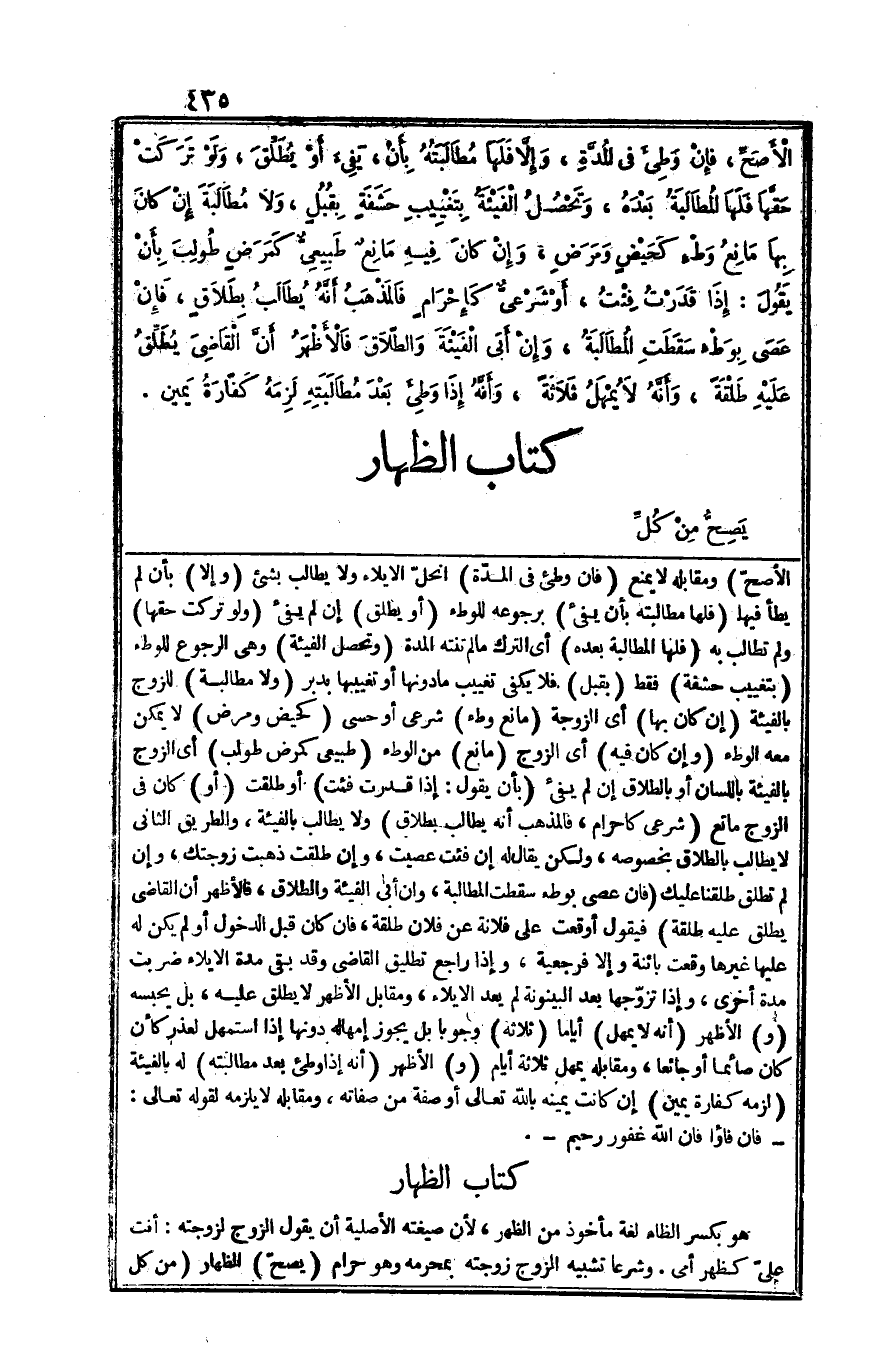 ٤٣٥
الْأَصَحِّ ، فَإِنْ وَطِئَ فِى الْمُدَّةِ ، وَإِلَّا فَلَهَا مُطَالَبَتُهُ بِأَنْ ، يَفِىءَ أَوْ يُطَلِّقَ ، وَلَوْ تَرَكَتْ
حَقَّهَا فَلَهَا الْمُطَالَبَةُ بَعْدَهُ ، وَتَحْصُلُ الْفَيْئَةُ بِتَغْيِيبِ حَشَفَةٍ بِقُبُلٍ ، وَلَا مُطَالَبَةَ إِنْ كَانَ
بِهَا مَانِعُ وَطْءٍ كَحَيْضٍ وَمَرَضٍ ، وَإِنْ كَانَ فِيهِ مَانِعٌ طَبِيعِىٌّ كَمَرَضٍ طُولِبَ بِأَنْ
يَقُولَ : إِذَا قَدَرْتُ فِئْتُ ، أَوْ شَرْعِىٌّ كَإِحْرَامٍ فَالْمَذْهَبُ أَنَّهُ يُطَالَبُ بِطَلَاقٍ ، فَإِنْ
عَصَى بِوَطْءٍ سَقَطَتِ الْمُطَالَبَةُ ، وَإِنْ أَبَى الْفَيْئَةَ وَالطَّلَاقَ فَالْأَظْهَرُ أَنَّ الْقَاضِىَ يُطَلِّقُ
عَلَيْهِ طَلْقَةً ، وَأَنَّهُ لَا يُمْهَلُ ثَلَاثَةً ، وَأَنَّهُ إِذَا وَطِئَ بَعْدَ مُطَالَبَتِهِ لَزِمَهُ كَفَّارَةُ يَمِينٍ .
كتاب الظهار
يَصِحُّ مِنْ كُلِّ
الأصحّ) ومقابله لا يمنع (فان وطئ فى المدّة) انحلّ الايلاء ولا يطالب بشئ (وإلا) بأن لم
يطأ فيها (فلها مطالبته بأن يفىء) برجوعه للوطء (أو يطلق) إن لم يفىء (ولو تركت حقها)
ولم تطالب به (فلها المطالبة بعده) أى الترك مالم تنته المدة (وتحصل الفيئة) وهى الرجوع للوطء
(بتغييب حشفة) فقط (بقبل) فلا يكفى تغييب مادونها أو تغييبها بدبر (ولا مطالبة) للزوج
بالفيئة (إن كان بها) أى الزوجة (مانع وطء) شرعى أو حسى (كحيض ومرض) لا يمكن
معه الوطء (وإن كان فيه) أى الزوج (مانع) من الوطء (طبيعى كمرض طولب) أى الزوج
بالفيئة باللسان أو بالطلاق إن لم يفىء (بأن يقول : إذا قدرت فئت) أو طلقت (أو) كان فى
الزوج مانع (شرعى كاحرام ، فالمذهب أنه يطالب بطلاق) ولا يطالب بالفيئة ، والطريق الثانى
لا يطالب بالطلاق بخصوصه ، ولكن يقال له إن فئت عصيت ، وإن طلقت ذهبت زوجتك ، وإن
لم تطلق طلقنا عليك (فان عصى بوطء سقطت المطالبة ، وان أبى الفيئة والطلاق ، فالأظهر أن القاضى
يطلق عليه طلقة) فيقول أوقعت على فلانة عن فلان طلقة ، فان كان قبل الدخول أو لم يكن له
عليها غيرها وقعت بائنة وإلا فرجعية ، وإذا راجع تطليق القاضى وقد بقى مدة الايلاء ضربت
مدة أخرى ، وإذا تزوّجها بعد البينونة لم يعد الايلاء ، ومقابل الأظهر لا يطلق عليه ، بل يحبسه
(و) الأظهر (أنه لا يمهل) أياما (ثلاثة) وجوبا بل يجوز إمهاله دونها إذا استمهل لعذر كأن
كان صائما أو جائعا ، ومقابله يمهل ثلاثة أيام (و) الأظهر (أنه إذا وطئ بعد مطالبته) له بالفيئة
(لزمه كفارة يمين) إن كانت يمينه بالله تعالى أو صفة من صفاته ، ومقابله لا يلزمه لقوله تعالى :
ـ فان فاؤا فان الله غفور رحيم ـ .
كتاب الظهار
هو بكسر الظاء لغة مأخوذ من الظهر ، لأن صيغته الأصلية أن يقول الزوج لزوجته : أنت
علىّ كظهر أمى . وشرعا تشبيه الزوج زوجته بمحرمه وهو حرام (يصحّ) الظهار (من كل